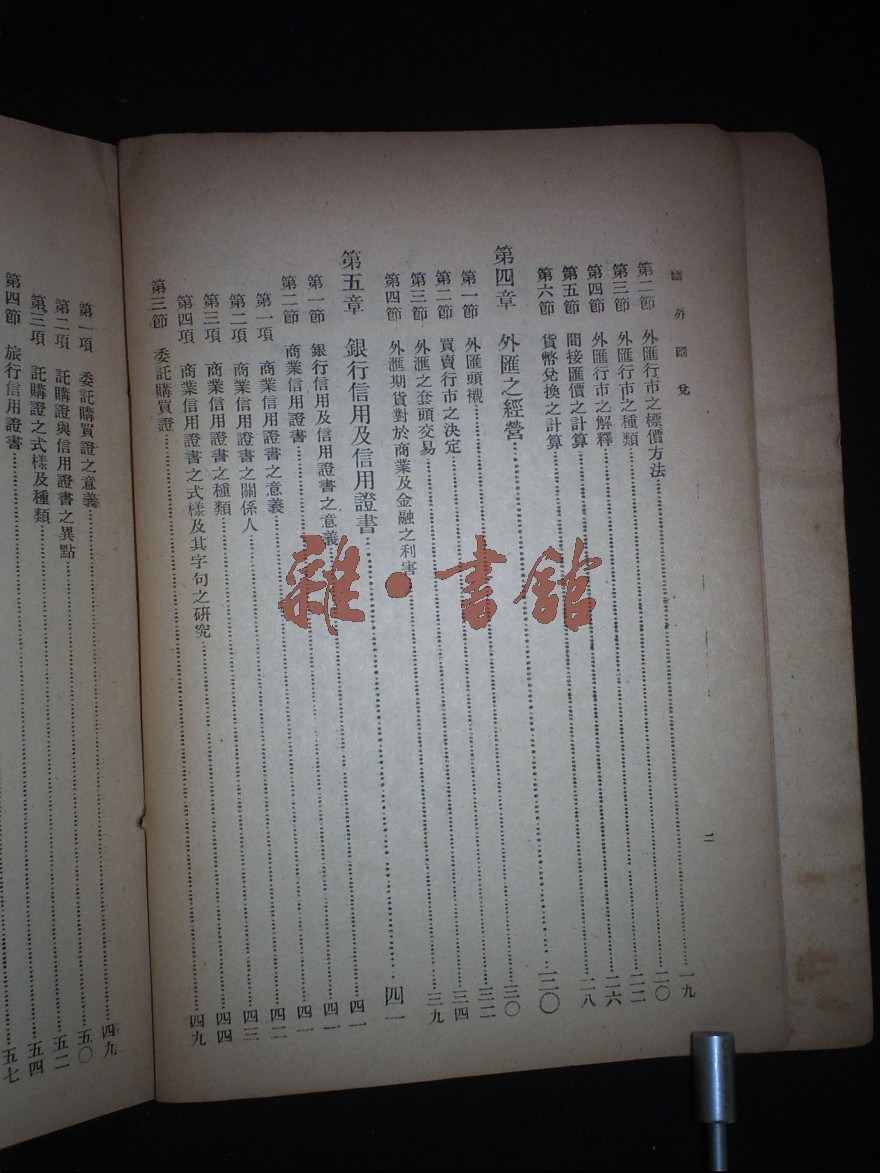 國外匯兌
二
第二節 外匯行市之標價方法……一九
第三節 外匯行市之種類……二〇
第四節 外匯行市之解釋……二二
第五節 間接匯價之計算……二六
第六節 貨幣兌換之計算……二八
第四章 外匯之經營……三〇
第一節 外匯頭襯……三〇
第二節 買賣行市之決定……三二
第三節 外滙之套頭交易……三四
第四節 外滙期貨對於商業及金融之利害……三九
第五章 銀行信用及信用證書……四一
第一節 銀行信用及信用證書之意義……四一
第二節 商業信用證書……四一
第一項 商業信用證書之意義……四一
第二項 商業信用證書之關係人……四二
第三項 商業信用證書之種類……四三
第四項 商業信用證書之式樣及其字句之研究……四四
第三節 委託購買證……四九
第一項 委託購買證之意義……四九
第二項 託購證與信用證書之異點……五〇
第三項 託購證之式樣及種類……五二
第四節 旅行信用證書……五四
五七
雜·書館